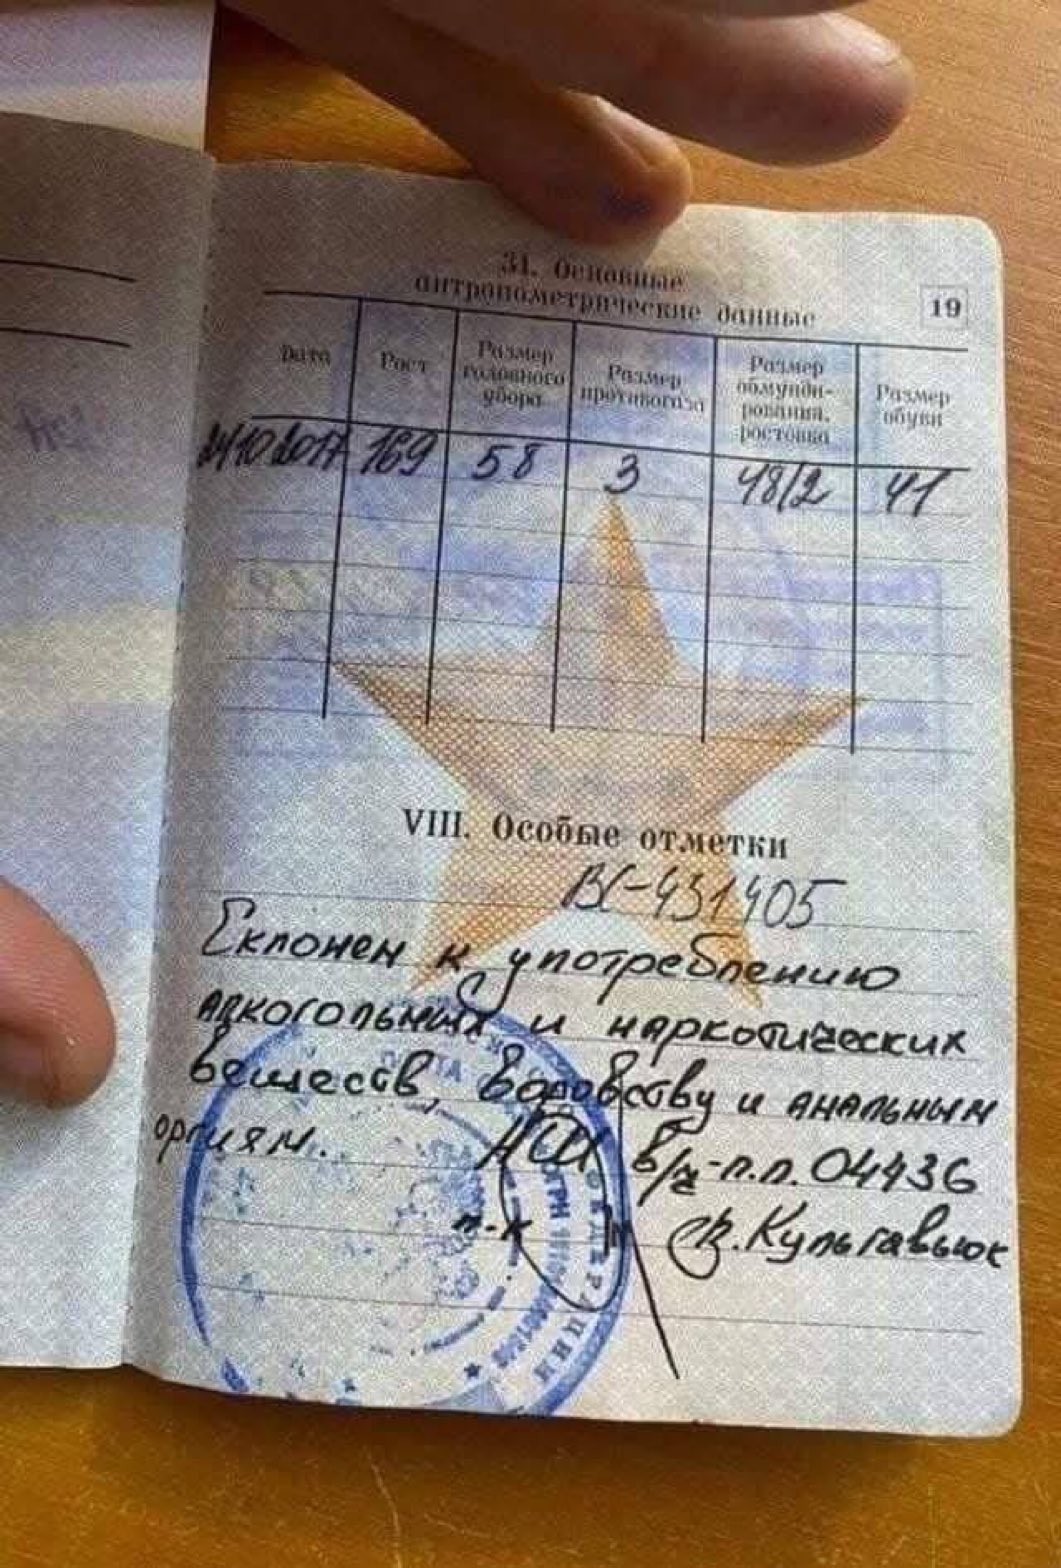 31. Основные
антропометрические данные
19
Дата Рост Размер головного убора Размер противогаза Размер обмундирования, ростовка Размер обуви
10 2017 169 58 3 48/2 41
VIII. Особые отметки
ВС-431405
Склонен к употреблению
алкогольных и наркотических
веществ, воровству и анальным
оргиям. НШ в/ч-п.п. 04436
п-к Кульгавьюк